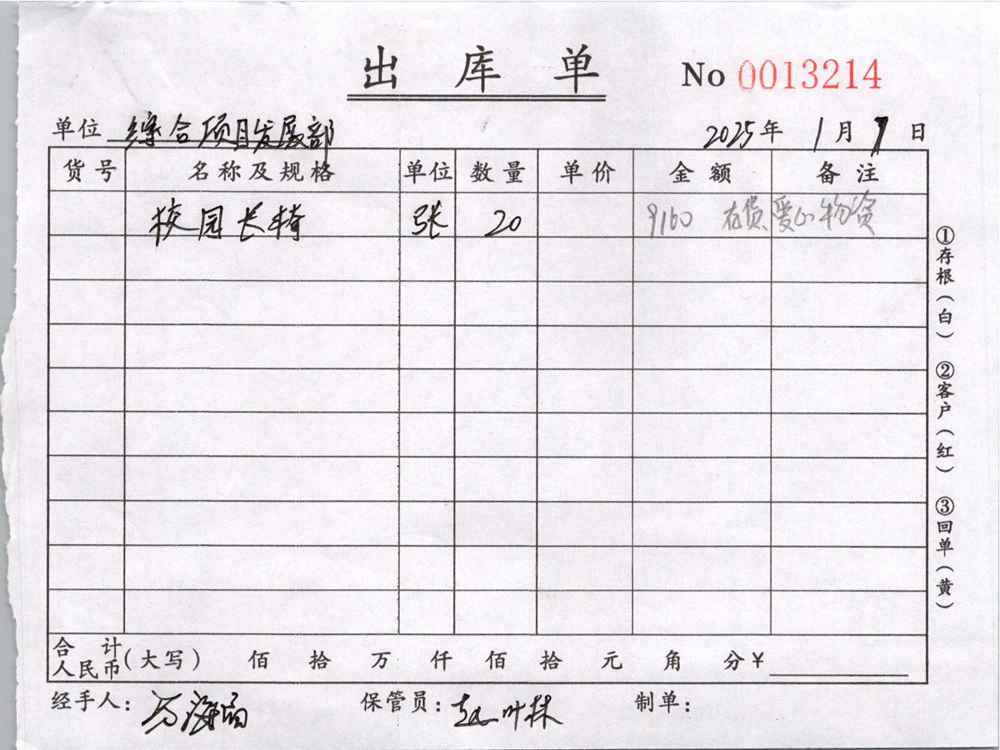 出库单 No 0013214
单位 综合项目发展部 2025年 1月 7日
货号 名称及规格 单位 数量 单价 金额 备注
校园长椅 张 20 9160 存货 爱心物资
合计人民币(大写) 佰 拾 万 仟 佰 拾 元 角 分¥
经手人: 保管员: 制单:
①存根(白) ②客户(红) ③回单(黄)